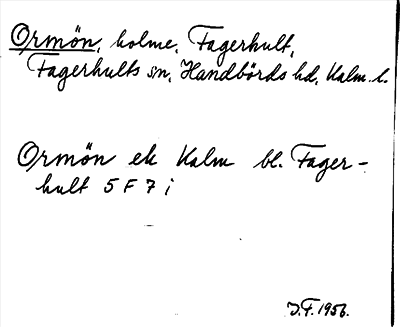 Ormön, holme, Fagerhult,
Fagerhults sn, Handbörds hd, Kalm. l.
Ormön ek Kalm bl. Fager-
hult 5 F 7 i
J.F. 1956.